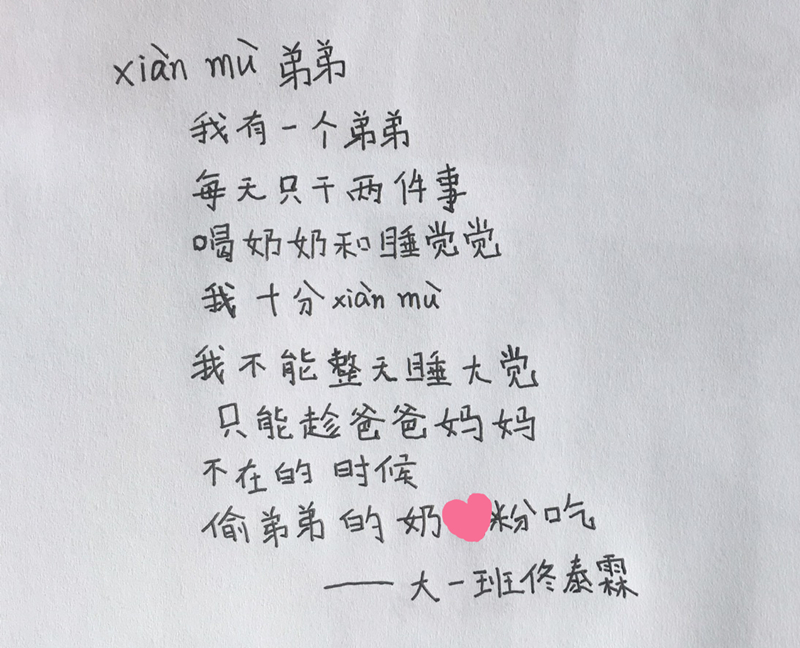 xiàn mù 弟弟
我有一个弟弟
每天只干两件事
喝奶奶和睡觉觉
我十分xiàn mù
我不能整天睡大觉
只能趁爸爸妈妈
不在的时候
偷弟弟的奶粉吃
—— 大一班佟泰霖